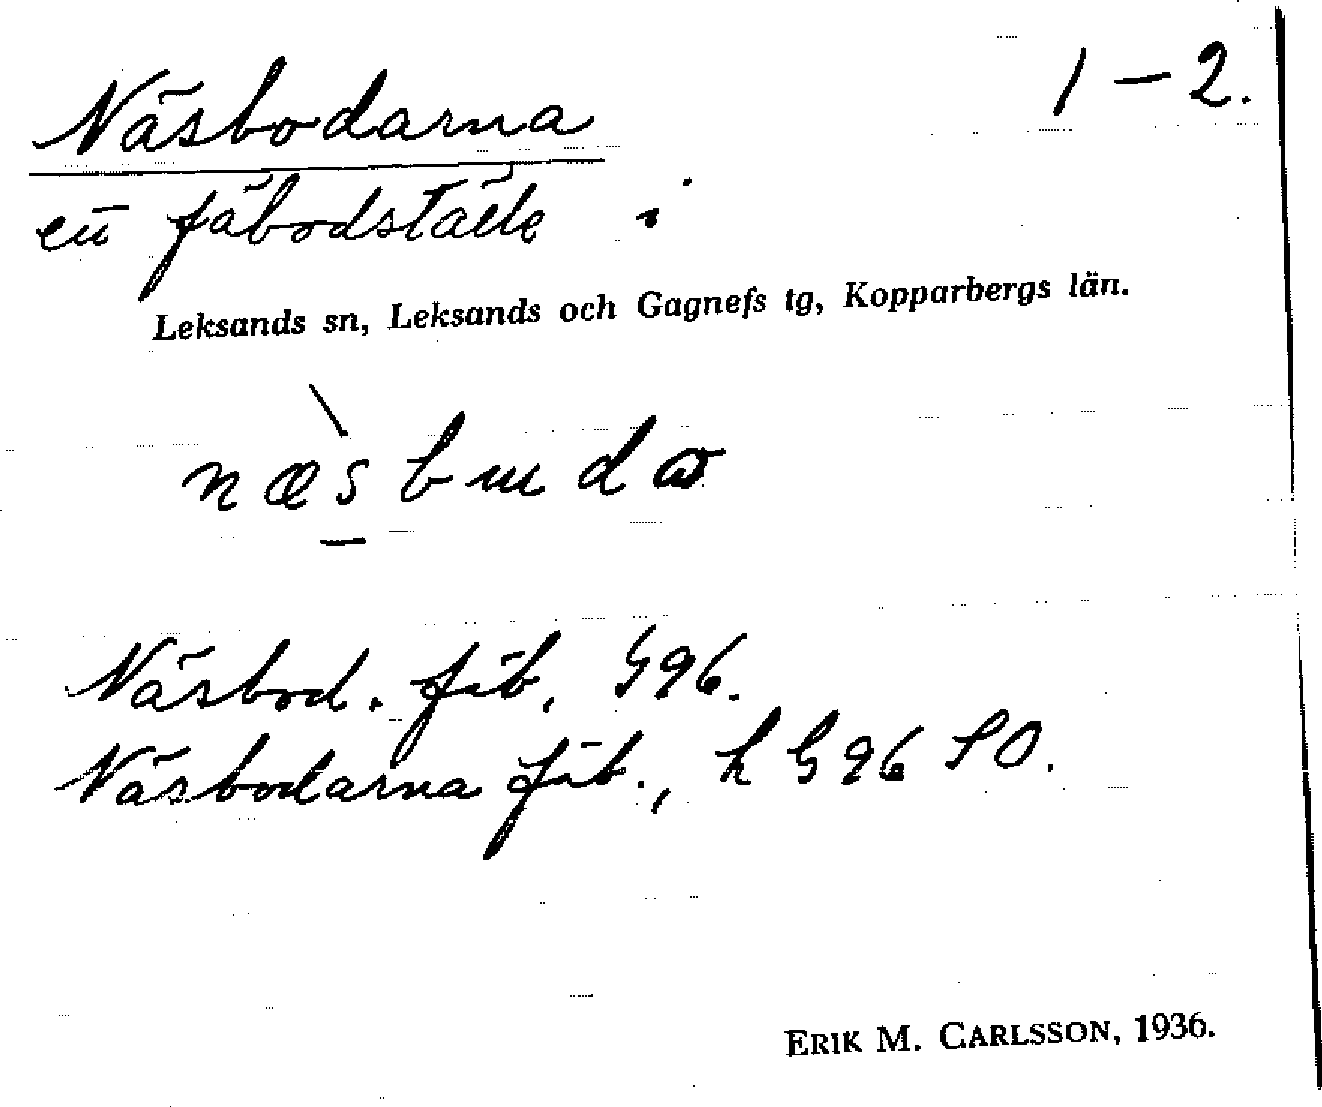 Näsbodarna 1-2.
ett fäbodställe i
Leksands sn, Leksands och Gagnefs tg, Kopparbergs län.
næ̀sbudar
Näsbod. fäb. G96.
Näsbodarna fäb., h G96 SO.
ERIK M. CARLSSON, 1936.